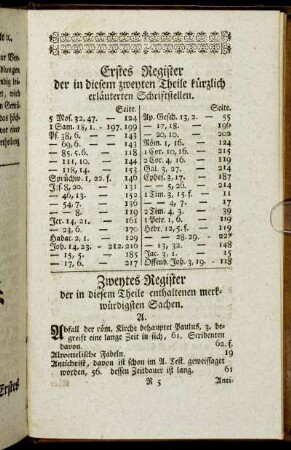 Erstes Register
der in diesem zweyten Theile kürzlich
erläuterten Schriftstellen.
Seite.
5 Mos. 32, 47. — 124
1 Sam. 18, 1. - 197. 199
Ps. 38, 6. — 143
— 69, 6. — 143
— 85. 5. 6. — 118
— 111, 10. — 144
— 118, 14. — 153
Sprüchw. 1, 22. f. 146
Jes. 8, 20. — 131
— 46, 12. — 153
— 54, 7. — 136
— — 8. — 119
Jer. 14, 21. — 161
— 23, 6. — 170
Habac. 2, 1. — 129
Joh. 14, 23. — 212. 216
— 15, 5. — 185
— 17, 6. — 217
Seite.
Ap. Gesch. 13, 2. — 55
— 17, 18. — 196
— 20, 10. — 202
Röm. 1, 16. — 124
1 Cor. 10, 16. — 215
2 Cor. 4, 16. — 119
Gal. 3, 27. — 214
Ephes. 3, 17. — 187
— 5, 26. — 214
1 Tim. 3, 15. f. — 11
— 4, 3. — 17
2 Tim. 4, 3. — 39
1 Petr. 1, 6. — 119
Hebr. 12, 5. f. — 119
— — 28. 29. — 227
— 13, 32. — 148
Jac. 3, 1. — 15
Offenb. Joh. 3, 19. - 118
Zweytes Register
der in diesem Theile enthaltenen merk-
würdigsten Sachen.
A.
Abfall der röm. Kirche behauptet Paulus, 3. be-
greift eine lange Zeit in sich, 61. Scribenten
davon. 62. f.
Altvettelische Fabeln. 19
Antichrist, davon ist schon im A. Test. geweissaget
worden, 56. dessen Zeitdauer ist lang. 61
R 5 Anti-